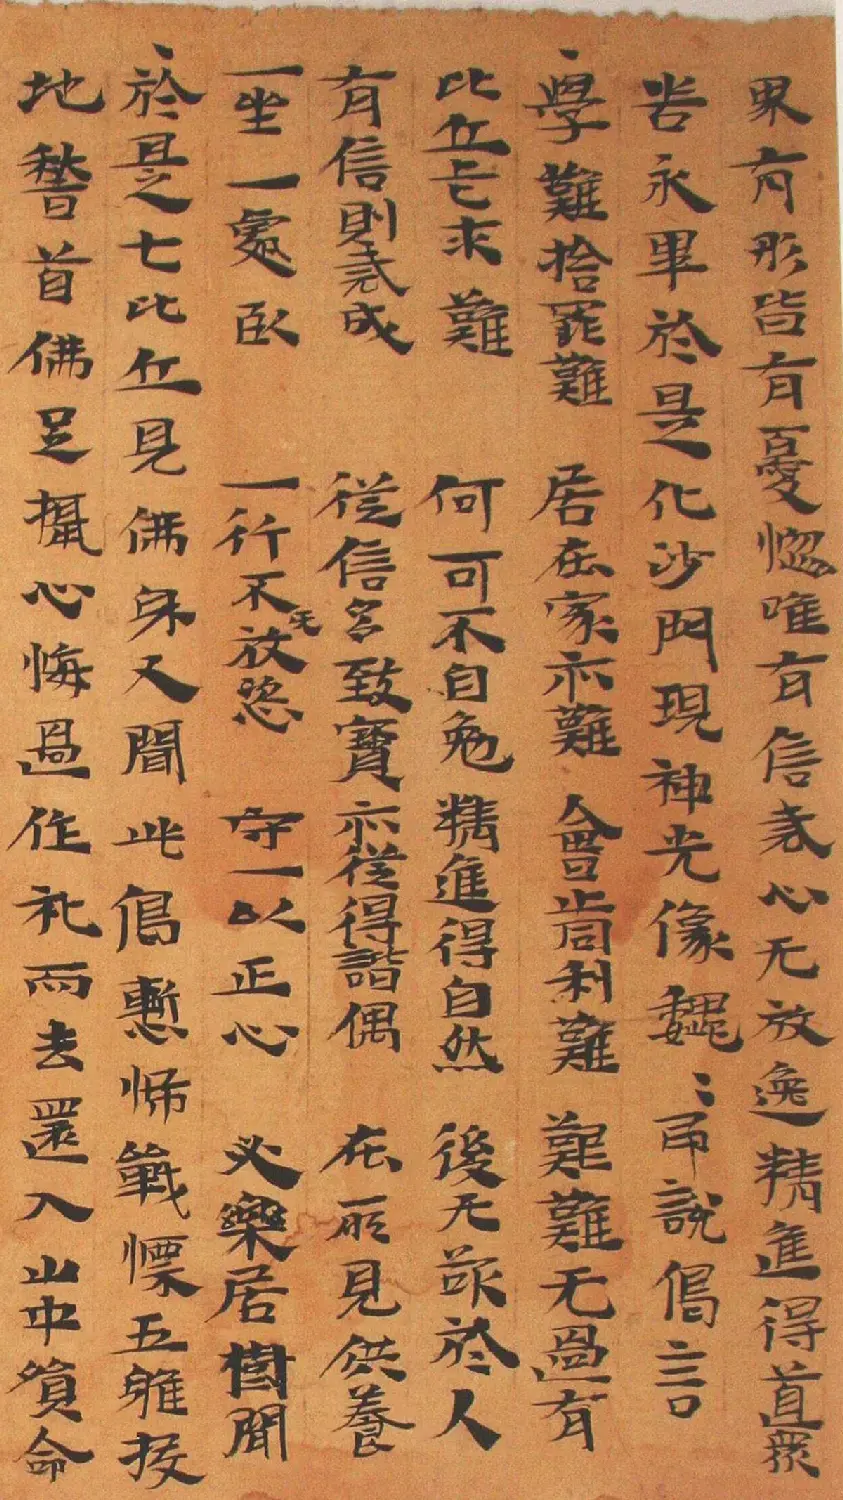 累有形皆有憂惱唯有信戒心无放逸精進得道眾
苦永畢於是化沙門現神光像巍〻即說偈言
、學難捨罪難　居在家亦難　會止同利難　艱難无過有
比丘乞求難　何可不自勉　精進得自然　後无欲於人
有信則戒成　從信名致寶　亦從得諧偶　在所見供養
一坐一處臥　一行不无放恣　守一以正心　必樂居樹間
、於是七比丘見佛身又聞此偈慙怖戰慄五體投
地稽首佛足攝心悔過作礼而去還入山中殞命